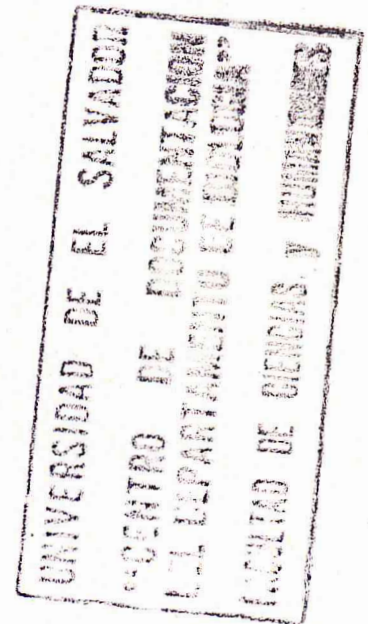 UNIVERSIDAD DE EL SALVADOR
"CENTRO DE DOCUMENTACION
DEPARTAMENTO DE
FACULTAD DE CIENCIAS Y HUMANIDADES